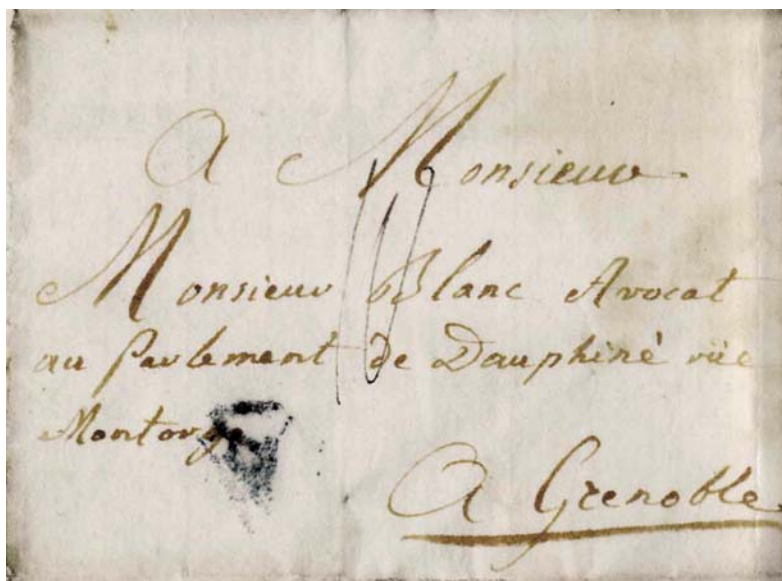 A Monsieur
Monsieur Blanc Avocat
au Parlement de Dauphiné rüe
Montorge
A Grenoble